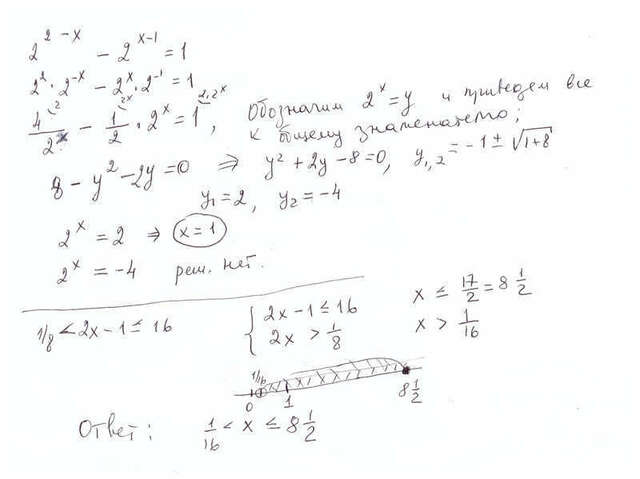 2^{2-x} - 2^{x-1} = 1
2^2 · 2^{-x} - 2^x · 2^{-1} = 1
4/2^x - 1/2 · 2^x = 1, Обозначим 2^x = y и приведем все
к общему знаменателю;
8 - y^2 - 2y = 0 ⇒ y^2 + 2y - 8 = 0, y_{1,2} = -1 ± √(1+8)
y_1 = 2, y_2 = -4
2^x = 2 ⇒ x = 1
2^x = -4 реш. нет.
1/8 < 2x - 1 ≤ 16
{ 2x - 1 ≤ 16
2x > 1/8
x ≤ 17/2 = 8 1/2
x > 1/16
1/16
0 1 8 1/2
Ответ: 1/16 < x ≤ 8 1/2